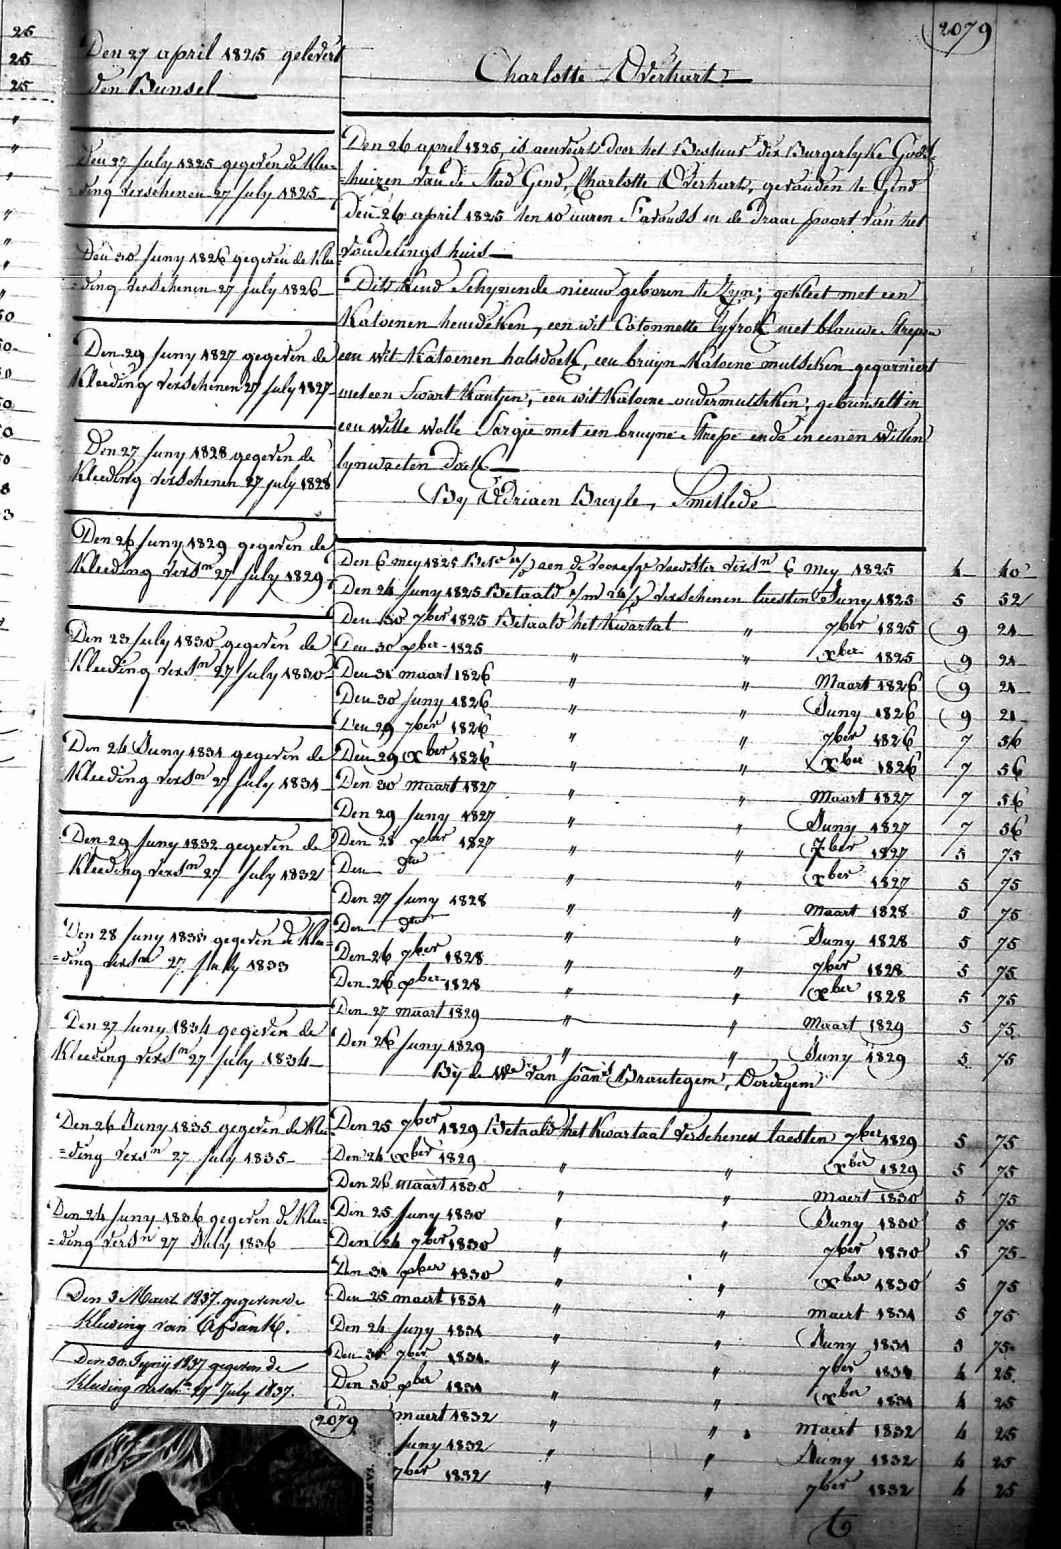 2079
25
25
25
Den 27 april 1825 gelevert
den Bunsel
Den 27 july 1825 gegeven de Klee=
=ding verschenen 27 july 1825
Den 30 juny 1826 gegeven de Klee=
=ding verschenen 27 july 1826
Den 29 juny 1827 gegeven de
Kleeding verschenen 27 july 1827
Den 27 juny 1828 gegeven de
Kleeding verschenen 27 july 1828
Den 26 juny 1829 gegeven de
Kleeding versn 27 july 1829
Den 23 july 1830 gegeven de
Kleeding versn 27 july 1830
Den 24 Juny 1831 gegeven de
Kleeding versn 27 july 1831
Den 29 juny 1832 gegeven de
Kleeding versn 27 july 1832
Den 28 juny 1833 gegeven de Klee=
=ding versn 27 july 1833
Den 27 juny 1834 gegeven de
Kleeding versn 27 july 1834
Den 26 Juny 1835 gegeven de Klee
=ding versn 27 july 1835
Den 24 juny 1836 gegeven de Klee=
=ding versn 27 July 1836
Den 3 Maert 1837 gegeven de
kleeding van
Den 30 Junij 1837 gegeven de
kleeding versch 27 July 1837.
2079
Charlotte Overhart
Den 26 april 1825, is aenveert door het Bestuur der Burgerlyke Gods=
=huizen van de Stad Gend, Charlotte Overhart, gevonden te Gend
den 26 april 1825 ten 10 uuren s'avonds in de Draae poort van het
vondelings huis
Dit Kind schynende nieuw geboren te zyn; gekleet met een
Katoenen hemdeken, een wit Cotonnette lyfrok met blauwe strepen
een wit Katoenen halsdoek, een bruyn Katoene mutseken gegarniert
met een swart Kantjen, een wit Katoene ondermutseken; gebunselt in
een witte wolle sargie met een bruyne strepe ende in eenen witten
lynwaeten doek
By Adriaen Breyle, Smetlede
Den 6 mey 1825 aen de voedster versn 6 mey 1825 4 40
Den 24 juny 1825 Betaald verschenen laesten Juny 1825 5 52
Den 30 7ber 1825 Betaald het Kwartat " 7ber 1825 9 21
Den 30 xber 1825 " " xber 1825 9 21
Den 31 maart 1826 " " Maart 1826 9 21
Den 30 juny 1826 " " Juny 1826 9 21
Den 29 7ber 1826 " " 7ber 1826 7 56
Den 29 xber 1826 " " xber 1826 7 56
Den 30 maart 1827 " " Maart 1827 7 56
Den 29 juny 1827 " " Juny 1827 7 56
Den 28 xber 1827 " 7ber 1827 5 75
Den dto " xber 1827 5 75
Den 27 juny 1828 " " Maart 1828 5 75
Den dto " " Juny 1828 5 75
Den 26 7ber 1828 " " 7ber 1828 5 75
Den 26 xber 1828 " xber 1828 5 75
Den 27 maart 1829 " " Maart 1829 5 75
Den 26 juny 1829 " " Juny 1829 5 75
By de We van Joans Brantegem, Dordegem
Den 25 7ber 1829 Betaald het Kwartaal verschenen laesten 7ber 1829 5 75
Den 24 xber 1829 " " xber 1829 5 75
Den 26 maart 1830 " " maert 1830 5 75
Den 25 juny 1830 " " Juny 1830 5 75
Den 24 7ber 1830 " " 7ber 1830 5 75
Den 31 xber 1830 " " xber 1830 5 75
Den 25 maert 1831 " " maert 1831 5 75
Den 24 juny 1831 " " Juny 1831 5 75
Den 30 7ber 1831 " " 7ber 1831 4 25
Den 30 xber 1831 " " xber 1831 4 25
maert 1832 " " maert 1832 4 25
juny 1832 " " Juny 1832 4 25
7ber 1832 " " 7ber 1832 4 25